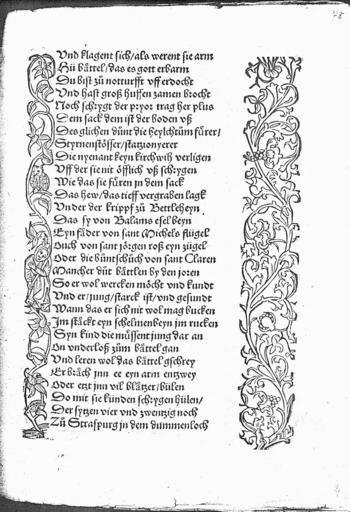 48
Vnd klagent sich/als werent sie arm
Hü bättel/das es gott erbarm
Du bist zů notturfft vff erdocht
Vnd hast groß huffen zamen brocht
Noch schrygt der pryor trag her plus
Dem sack dem ist der boden vß
Des glichen dünt die heyltům fürer/
Styrnenstösser/stationyerer
Die nyenant keyn kirchwih verligen
Vff der sie nit öfflich vß schrygen
Wie das sie füren in dem sack
Das hew/das tieff vergraben lagk
Vnder der krippf zů Bettleheyn
Das sy von Balams esel beyn
Eyn fäder von sant Michels flügel
Ouch von sant jörgen roß eyn zügel
Oder die buntschůch von sant Claren
Mancher důt bättlen by den joren
So er wol wercken möcht vnd kundt
Vnd er/jung/starck ist/vnd gesundt
Wann das er sich nit wol mag bucken
Im stäckt eyn schelmenbeyn im rucken
Syn kind die müssent jung dar an
On vnderloß zům bättel gan
Vnd leren wol das bättel gschrey
Er bräch jnn ee eyn arm entzwey
Oder etzt jnn vil blätzer/bülen
Do mit sie kunden schrygen/hülen/
Der sytzen vier vnd zwentzig noch
Zů Straspurg jn dem dummenloch